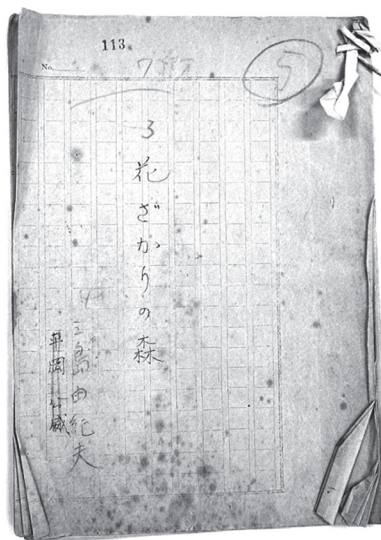 113
No.
5
3 花ざかりの森
三島由紀夫
平岡公威